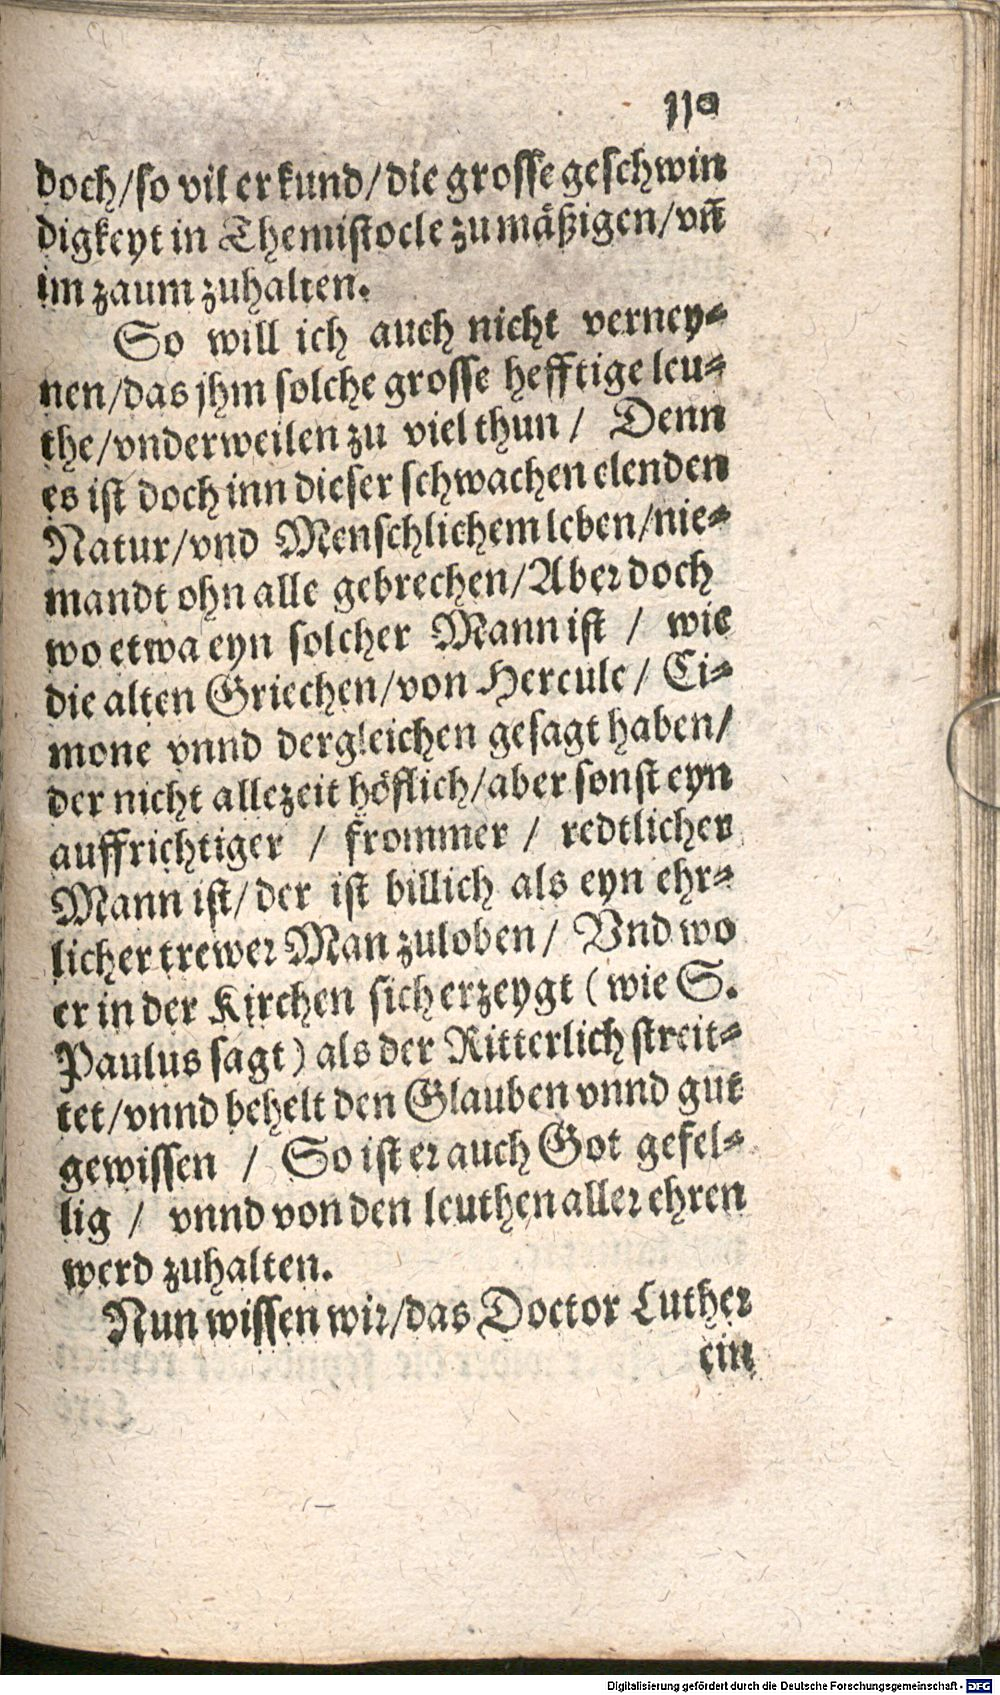 110
doch/so vil er kund/die grosse geschwin
digkeyt in Themistocle zu mäßigen/vñ
im zaum zuhalten.
So will ich auch nicht verney⸗
nen/das jhm solche grosse hefftige leu⸗
the/vnderweilen zu viel thun / Denn
es ist doch inn dieser schwachen elenden
Natur/vnd Menschlichem leben/nie⸗
mandt ohn alle gebrechen/Aber doch
wo etwa eyn solcher Mann ist / wie
die alten Griechen/von Hercule/ Ci⸗
mone vnnd dergleichen gesagt haben/
der nicht allezeit höflich/aber sonst eyn
auffrichtiger / frommer / redtlicher
Mann ist/der ist billich als eyn ehr⸗
licher trewer Man zuloben/ Vnd wo
er in der Kirchen sich erzeygt (wie S.
Paulus sagt) als der Ritterlich streit⸗
tet/vnnd behelt den Glauben vnnd gut
gewissen / So ist er auch Got gefel⸗
lig / vnnd von den leuthen aller ehren
werd zuhalten.
Nun wissen wir/das Doctor Luther
ein
Digitalisierung gefördert durch die Deutsche Forschungsgemeinschaft - DFG